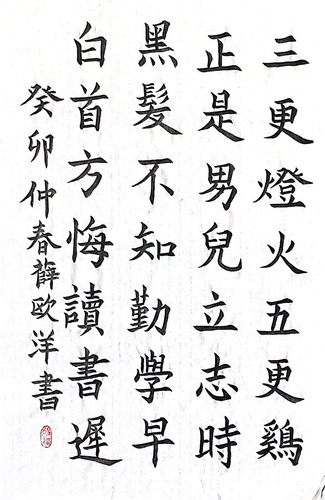 三更燈火五更鷄
正是男兒立志時
黑髮不知勤學早
白首方悔讀書遲
癸卯仲春薛歐洋書